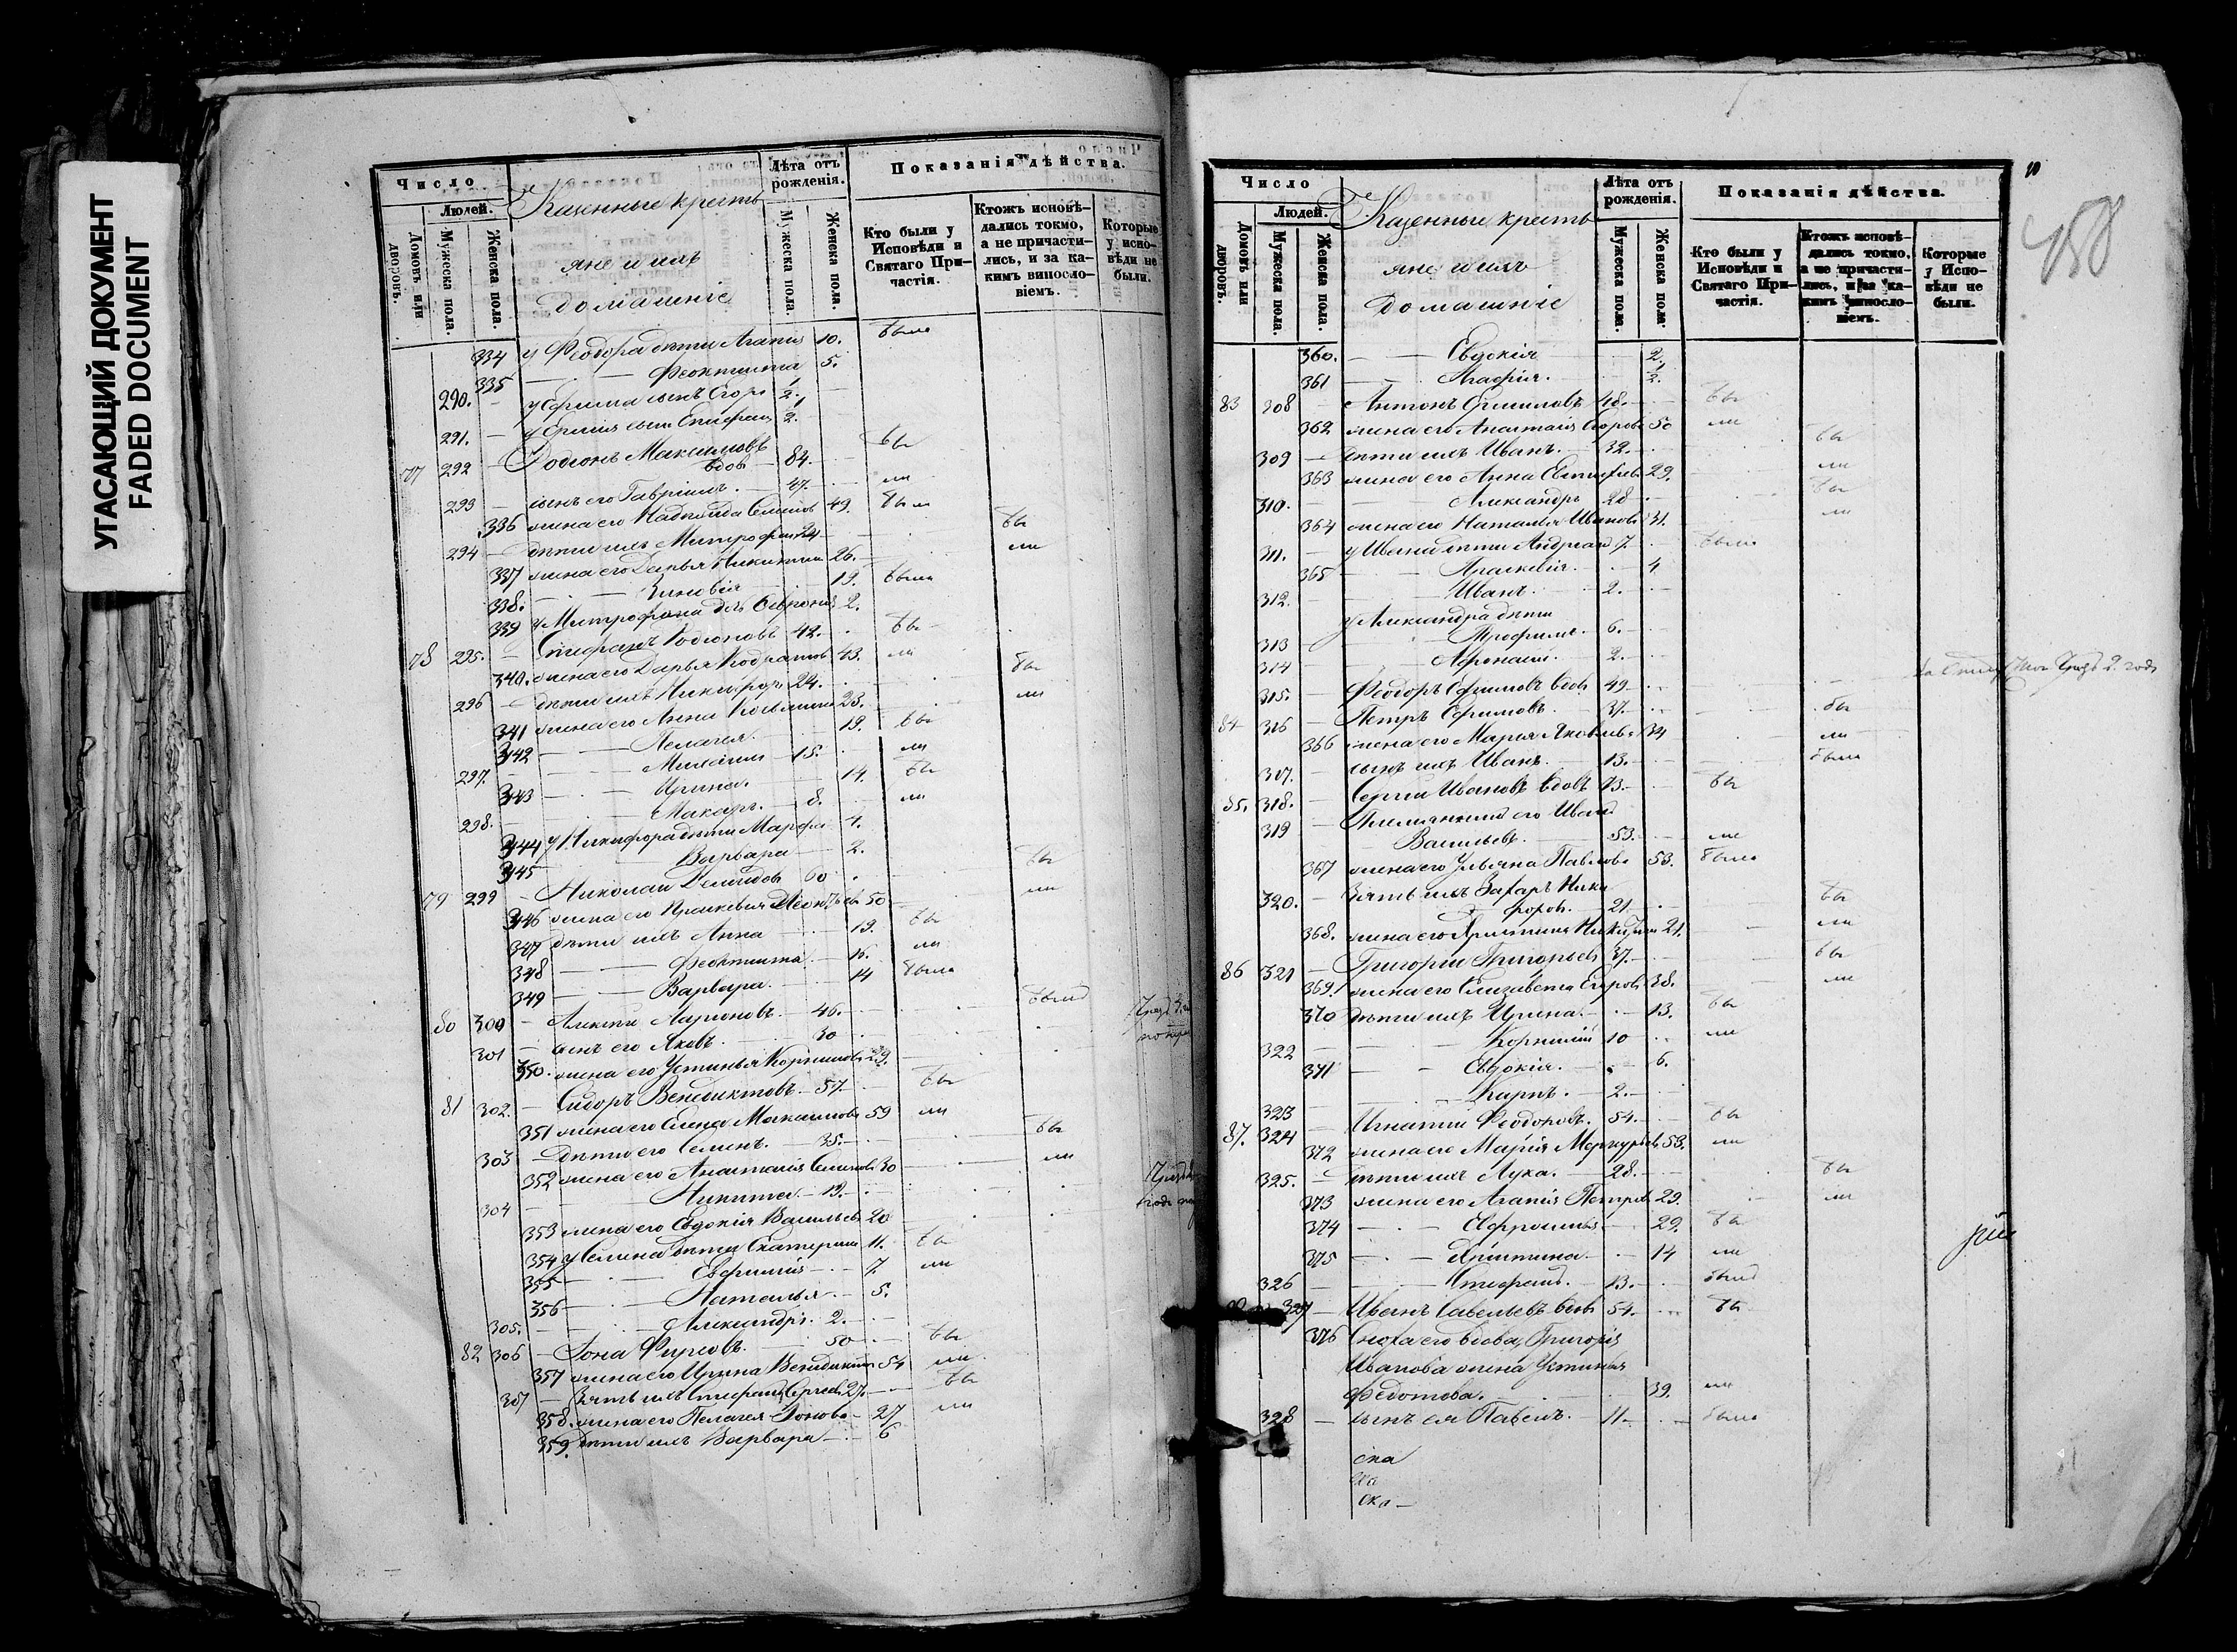 УГАСАЮЩИЙ ДОКУМЕНТ
FADED DOCUMENT
Число
Людей.
Домовъ или дворовъ.
Мужеска пола.
Женска пола.
Казенные кресть
яне и ихъ
домашніе
Лѣта отъ рожденія.
Мужеска пола.
Женска пола.
Показанія дѣйства.
Кто были у Исповѣди и Святаго Причастія.
Ктожъ исповѣдались токмо, а не причастились, и за какимъ винословіемъ.
Которые у исповѣди не были.
334 у Феодора дѣти Агапія 10. была
335 — — Феоктиста 5.
290. — у Ефима сынъ Егоръ 1/2.
291. — сынъ Стефанъ 1/2.
77 292 — Родіонъ Максимовъ
вдовъ — 84. бы
293 — сынъ его Гавріилъ. — 47. ли
336 жена его Надежда 49. была
294 — дѣти ихъ Митрофанъ 24 бы
337 жена его Дарья Никитина 26. ли
338. — — Зиновія 19. была
339 у Митрофана дочь Февронія 2.
78 295. — Стефанъ Родіоновъ 42. бы
340. жена его Дарья Кодратова 43. ли
296 — дѣти ихъ Никифоръ 24. бы
341 жена его Анна Козьмина 23. ли
342 — — Пелагея. 19. бы
297. — — Михаилъ 15. ли
343 — — Ирина. 14. бы
298. — — Макаръ. — 8. ли
344 у Никифора дѣти Марфа 4.
345 — — Варвара 2.
79 299 — Николай Демидовъ 60 бы
346 жена его Праскевія Леонтьева 50 ли
347 дѣти ихъ Анна 19. бы
348 — — Феоктиста. 16. ли
349 — — Варвара. 14 была
80 300 — Алексѣй Ларіоновъ. — 46. былъ
301 — сынъ его Яковъ. 30
350. жена его Устинья Корнилова 29.
81 302. — Сидоръ Венедиктовъ. — 57. бы
351 жена его Елена Максимова 59 ли
303 — дѣти его Семенъ. — 35. бы
352 жена его Анастасія Семенова 30 ли
304 — — Никита. — 19.
353 жена его Евдокія Васильева 20
354 у Семена дѣти Екатерина 11. бы
355 — — Евфимія 7. ли
356 — — Наталья. 5.
305. — — Александръ. 2.
82 306 — Іона Фирсовъ. 50 бы
357 жена его Ирина Венедиктова 54 ли
307 — зять ихъ Стефанъ Сергѣевъ 27. бы
358. жена его Пелагея Іонова — 27 ли
359. дѣти ихъ Варвара — 6
Число
Людей.
Домовъ или дворовъ.
Мужеска пола.
Женска пола.
Казенные кресть
яне и ихъ
домашніе
Лѣта отъ рожденія.
Мужеска пола.
Женска пола.
Показанія дѣйства.
Кто были у Исповѣди и Святаго Причастія.
Ктожъ исповѣдались токмо, а не причастились, и за какимъ винословіемъ.
Которые у Исповѣди не были.
458
360. — — Евдокія 2.
361 — — Агафія. 1/2.
83 308 — Антонъ 48. бы
362 жена его Анастасія Егорова 50 ли
309 — дѣти ихъ Иванъ. — 32. бы
363 жена его Анна Евтифіева 29. ли
310. — Александръ 28 бы
364 жена его Наталья Иванова 31. ли
311. — у Ивана дѣти Андреанъ 7. была
365 — — Праскевія. 4
312. — — Иванъ. 2.
у Александра дѣти
313 — Трофимъ. 6.
314 — — Афонасій. 2.
315. — Феодоръ Ефимовъ вдовъ 49
84 316 — Петръ Ефимовъ. — 37. бы
366 жена его Марія Яковлева 34 ли
317. — сынъ ихъ Иванъ. — 13. была
85. 318. — Сергій Ивановъ вдовъ 73. бы
319 — Племянникъ его Иванъ
Васильевъ. 53. ли
367 жена его Ульяна Павлова 53. была
320. — Зять ихъ Захаръ Ники
форовъ. — 21 бы
368. жена его Христина 21. ли
86 321 — Григорій Григорьевъ 37. бы
369. жена его Елизавета Егорова 38. ли
370 дѣти ихъ Ирина. 13. бы
322 — — Корнилій 10 ли
371 — — Евдокія. 6.
323 — — Карпъ. — 2.
87. 324 — Игнатій Феодоровъ. 54. бы
372 жена его Марія Меркурьева 53. ли
325. — дѣти ихъ Лука. — 28. бы
373 жена его Агапія Петрова 29. ли
374 — — Ефросинья 29. бы
375 — — Христина. 14 ли
326 — — Стефанъ. — 13. былъ
327 — Иванъ Савельевъ вдовъ 54. бы
376 Сноха его вдова, Григорія
Иванова жена Устинья
Федотова. 39. ли
328 — сынъ ея Павелъ. — 11. была